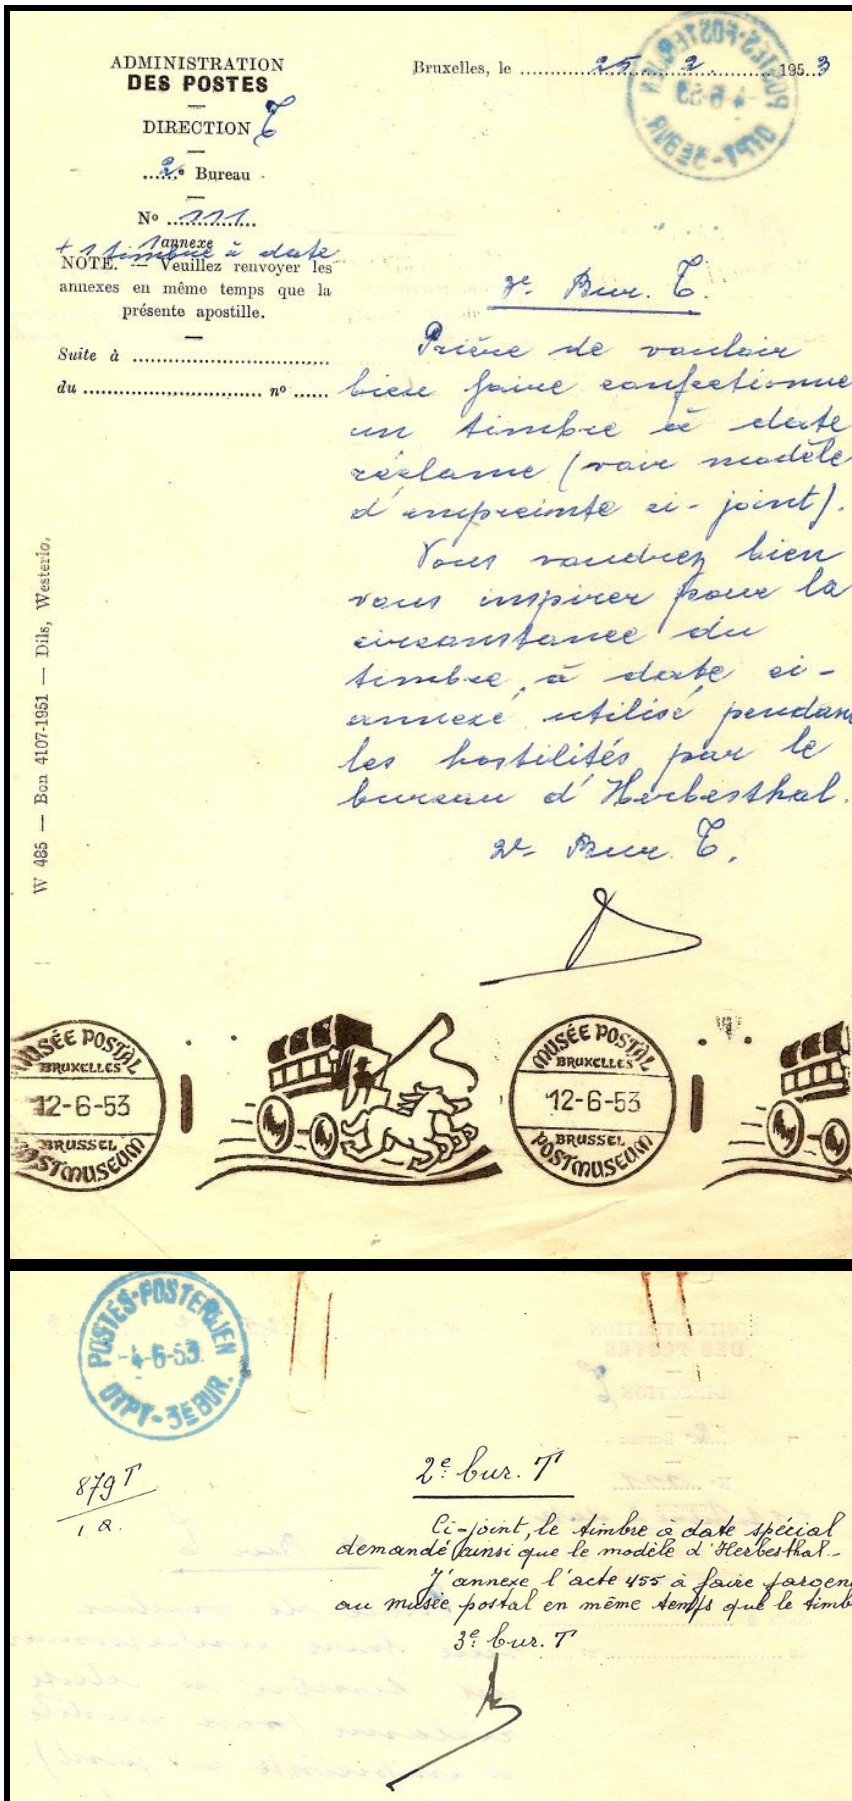 ADMINISTRATION
DES POSTES
DIRECTION T
2e Bureau
No 111
1 annexe
+ 1 timbre à date
NOTE. — Veuillez renvoyer les
annexes en même temps que la
présente apostille.
Suite à
du nº
Bruxelles, le 25. 2. 1953
POSTES-POSTERIJEN
-4-6-53
DTPT-3E BUR.
3e Bur. T.
Prière de vouloir
bien faire confectionne
un timbre à date
réclame (voir modèle
d'empreinte ci-joint).
Vous voudrez bien
vous inspirer pour la
circonstance du
timbre à date ci-
annexé utilisé pendan
les hostilités par le
bureau d'Herbesthal.
2e Bur. T.
W 485 — Bon 4107-1951 — Dils, Westerlo.
MUSÉE POSTAL
BRUXELLES
12-6-53
BRUSSEL
POSTMUSEUM
MUSÉE POSTAL
BRUXELLES
12-6-53
BRUSSEL
POSTMUSEUM
POSTES-POSTERIJEN
-4-6-53
DTPT-3E BUR.
879 T
1 a.
2e bur. T
Ci-joint, le timbre à date spécial
demandé ainsi que le modèle d'Herbesthal.-
J'annexe l'acte 455 à faire parven
au musée postal en même temps que le timb
3e bur. T